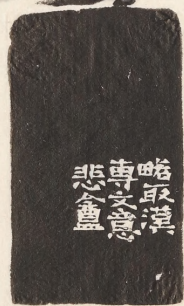 略取漢
專文意
悲盦